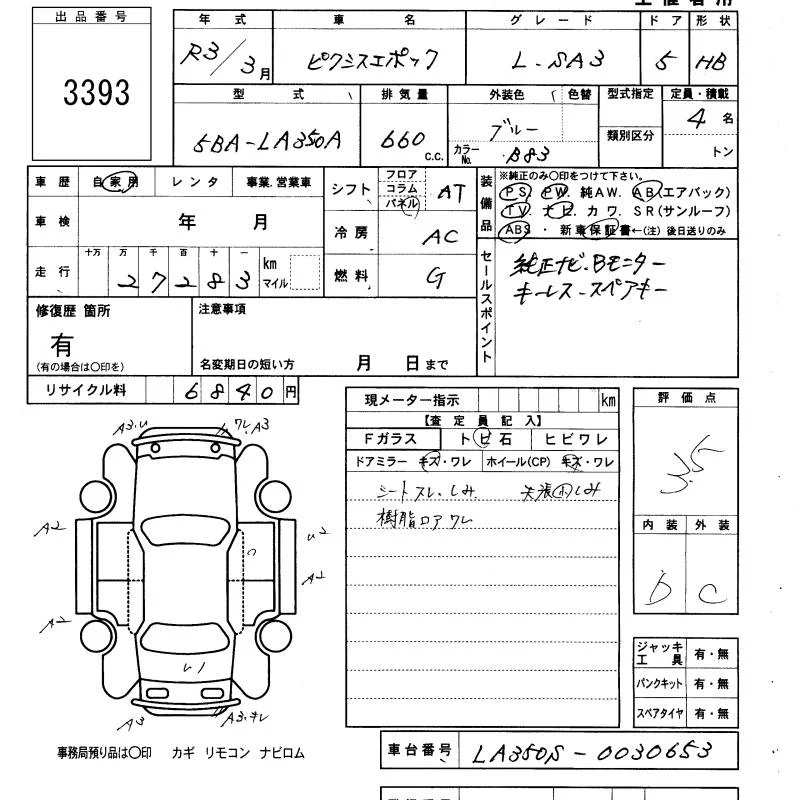 出品番号
3393
年式 車名 グレード ドア 形状
R3/3月 ピクシスエポック L.SA3 5 HB
型式 排気量 外装色 色替 型式指定 定員・積載
5BA-LA350A 660 c.c. ブルー カラーNo. B83 類別区分 4名 トン
車歴 自家用 レンタ 事業.営業車
シフト フロア コラム パネル AT
装備品 ※純正のみ○印をつけて下さい。
PS PW 純AW. AB(エアバック)
TV. ナビ カワ. SR(サンルーフ)
ABS ・ 新車保証書←(注)後日送りのみ
車検 年 月
冷房 AC
走行 十万 万 千 百 十 一 km マイル
27283
燃料 G
セールスポイント
純正ナビ.Bモニター
キーレス.スペアキー
修復歴 箇所
有
(有の場合は○印を)
注意事項
名変期日の短い方 月 日まで
リサイクル料 6840円
現メーター指示 km
【査定員記入】
Fガラス トビ石 ヒビワレ
ドアミラー キズ・ワレ ホイール(CP) キズ・ワレ
シートスレ.しみ.
しみ
樹脂ロア ワレ
評価点
3.5
内装 外装
D C
A3.U
ワレ.A3
A2
U2
A2
A2
A3
ジャッキ工具 有・無
パンクキット 有・無
スペアタイヤ 有・無
事務局預り品は○印 カギ リモコン ナビロム
車台番号 LA350S-0030653